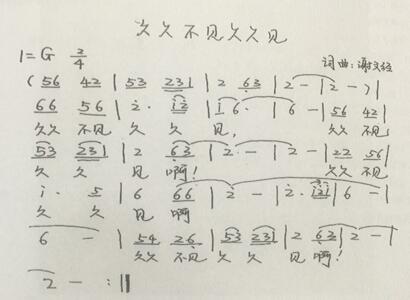 久久不见久久见
1=G 2/4
词曲:谢文经
( 56 42 | 53 231 | 2 63 | 2 - | 2 - ) |
66 56 | 2· 12 | 1 6· | 6 - | 56 42 |
久久 不见 久 久 见, 久久 不见
53 231 | 2 63 | 2· - | 2 - | 22 56 |
久 久 见 啊! 久久 不见
1· 5 | 6 66 | 2 - | 2· 121 | 6 - |
久 久 见 啊
6 - | 54 26 | 53 231 | 2 63 | 2 - |
久久 不见 久 久 见 啊!
2 - :‖